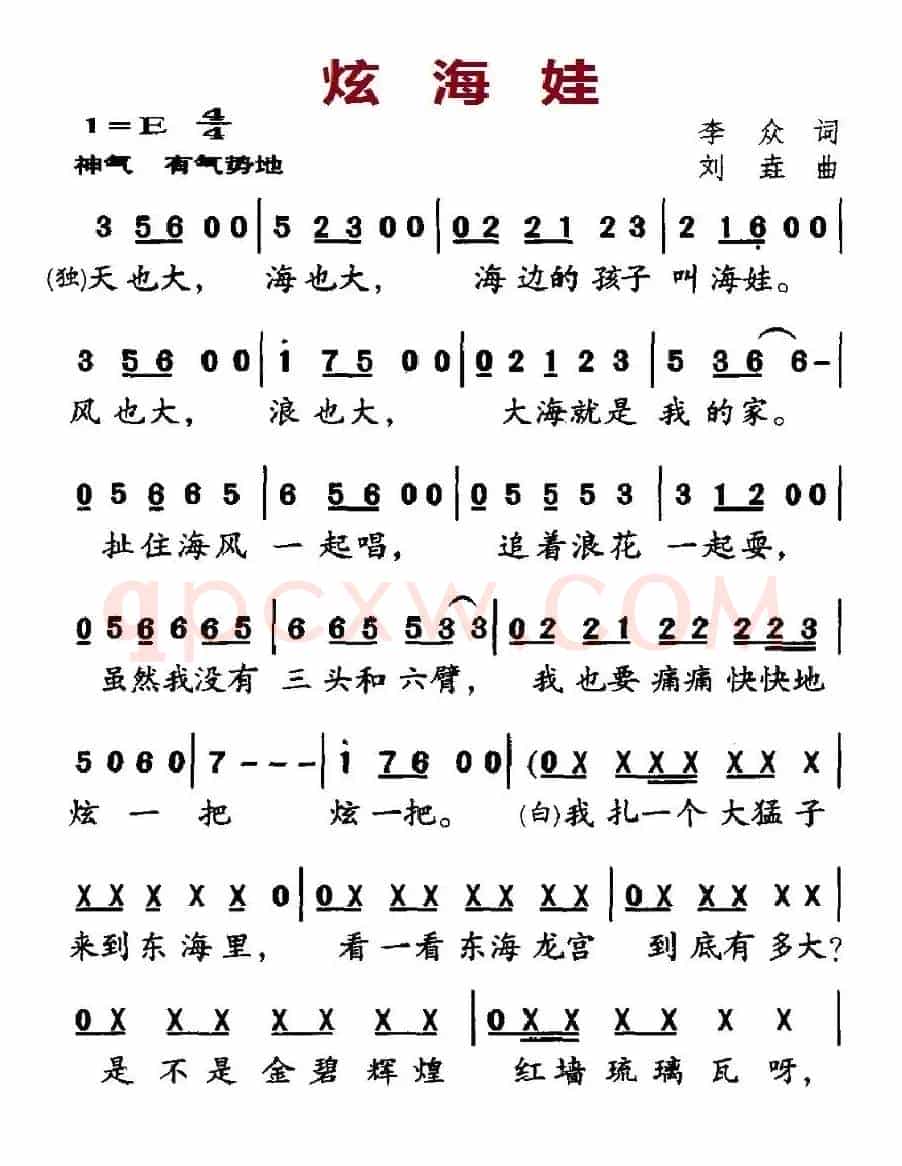 炫海娃
1=E 4/4
李众词
神气 有气势地
刘垚曲
3 5 6 0 0 | 5 2 3 0 0 | 0 2 2 1 2 3 | 2 1 6 0 0 |
(独)天也大, 海也大, 海边的孩子叫海娃。
3 5 6 0 0 | i 7 5 0 0 | 0 2 1 2 3 | 5 3 6 6 - |
风也大, 浪也大, 大海就是我的家。
0 5 6 6 5 | 6 5 6 0 0 | 0 5 5 5 3 | 3 1 2 0 0 |
扯住海风一起唱, 追着浪花一起耍,
0 5 6 6 6 6 5 | 6 6 5 5 3 3 | 0 2 2 1 2 2 2 2 2 3 |
虽然我没有三头和六臂, 我也要痛痛快快地
5 0 6 0 | 7 - - - | i 7 6 0 0 | (0 X X X X X X X X
炫一把 炫一把。 (白)我扎一个大猛子
X X X X X 0 | 0 X X X X X X X | 0 X X X X X |
来到东海里, 看一看东海龙宫到底有多大?
0 X X X X X X X | 0 X X X X X X X |
是不是金碧辉煌 红墙琉璃瓦呀,
qpcxw.COM